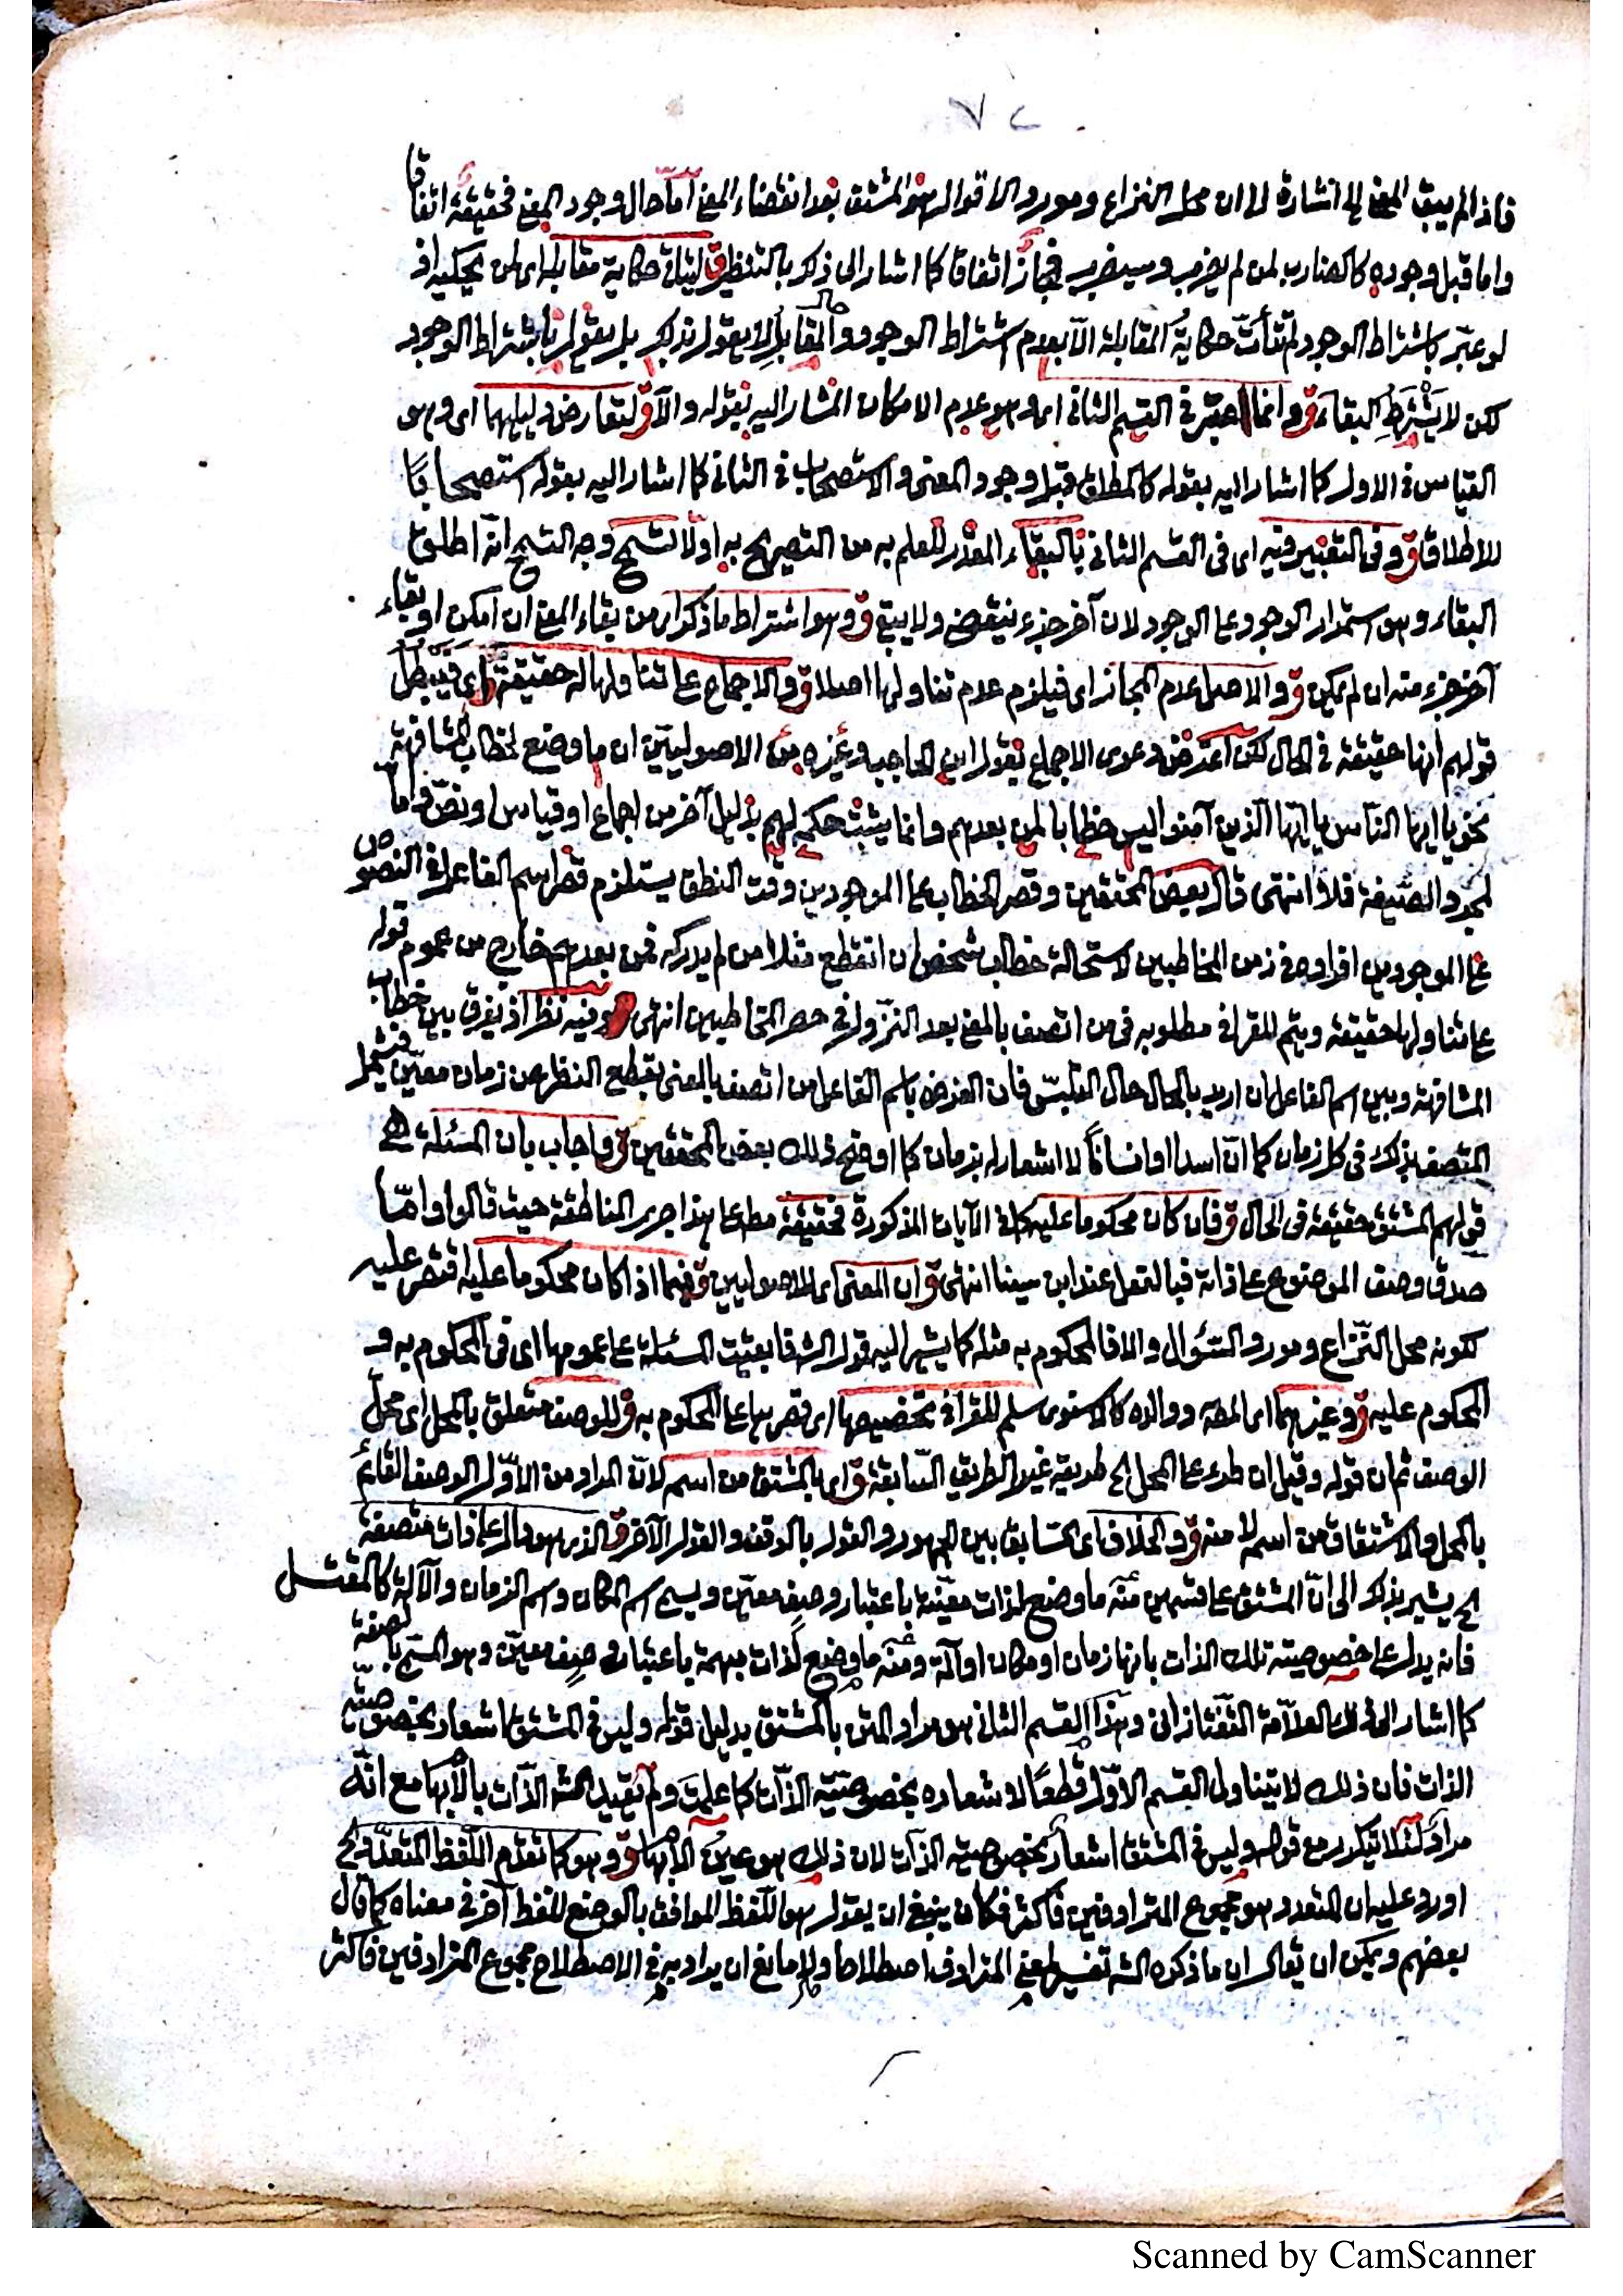 ٧٢
فاذا لم يبق المعنى الخ اشارة لا ان محل النزاع ومورد الاقوال هو المشتق بعد انقضاء المعنى اما حال وجود المعنى فحقيقة اتفاقا
واما قبل وجوده كالضارب لمن لم يضرب وسيضرب فمجاز اتفاقا كما اشار الى ذلك بالتنظير ق ليتأتى حكاية مقابله اى لمن يحكيه اذ
لو عبّر باشتراط الوجود لم تتأت حكاية المقابلة الا بعدم اشتراط الوجود والمقابل لا يقول بذلك بل يقول باشتراط الوجود
لكن لا يَشْتَرِط البقاء ق وانما اعتبر فى القسم الثانى اى وهو عدم الامكان المشار اليه بقوله والا ق لتعارض دليليهما اى وهو
القياس فى الاول كما اشار اليه بقوله كالمطلق قبل وجود المعنى والاستصحاب فى الثانى كما اشار اليه بقوله استصحابا
للاطلاق ق وفى التعبير فيه اى فى القسم الثانى بالبقاء المقدر للعلم به من التصريح به اولا تسمح وجه التسمح انه اطلق
البقاء وهو استمرار الوجود على الوجود لان آخر جزء ينقضى ولا يبقى ق وهو اشتراط ما ذكر اى من بقاء المعنى ان امكن او بقاء
آخر جزء منه ان لم يمكن ق والاصل عدم المجاز اى فيلزم عدم تناولها اصلا ق والاجماع على تناولها له حقيقة اى فيبطل
قولهم انها حقيقة فى الحال لكن اعترض دعوى الاجماع بقول ابن الحاجب وغيره من الاصوليين ان ما وضع لخطاب المشافهة
نحو يا ايها الناس يا ايها الذين آمنوا ليس خطابا لمن بعدهم وانما يثبت حكمه لهم بدليل آخر من اجماع او قياس او نص واما
لمجرد الصيغة فلا انتهى قال بعض المحققين وقصر الخطاب على الموجودين وقت النطق يستلزم قصر اسم الفاعل فى النصوص
على الموجودين افراده فى زمن المخاطبين لاستحالة خطاب شخص ان انقطع مثلا من لم يدركه فمن بعدهم خارج من عموم قوله
على تناولها حقيقة ويتم للقرافى مطلوبه فى من اتصف بالمعنى بعد النزول فى حصر التخاطبين انتهى وفيه نظر اذ يفرق بين خطاب
المشافهة وبين اسم الفاعل ان اريد بالحال حال التلبس فان الغرض باسم الفاعل من اتصف بالمعنى بقطع النظر عن زمان معيّن فيشمل
المتصف بذلك فى كل زمان كما ان اسدا او انسانا لا اشعار له بزمان كما اوضح ذلك بعض المحققين ق واجاب بان المسئلة الخ
قولهم المشتق حقيقة فى الحال ق فان كان محكوما عليه كما فى الآيات المذكورة فحقيقة مطلقا على هذا جرى المناطقة حيث قالوا واما
صدق وصف الموضوع على ذاته فبالفعل عند ابن سينا انتهى ق ان المعنى اى للاصوليين ق فيما اذا كان محكوما عليه اقتصر عليه
لكونه محل النزاع ومورد السؤال والا فالمحكوم به مثله كما يشير اليه قول الش فابقيت المسئلة على عمومها اى فى المحكوم به و
المحكوم عليه ق وغيرهما اى المص ووالده كالاسنوى سلم للقرافى تخصيصها اى قصرها على المحكوم به ق للوصف متعلق بالمحل اى محل
الوصف ثم ان قوله وقيل ان طرء على المحل الخ طريقة غير الطريق السابقة ق اى بالمشتق من اسم لان المراد من الاول الوصف القائم
بالمحل والاشتقاق من اسمه لا منه ق والخلاف اى السابق بين الجمهور والقول بالوقف والقول الآخر ق الذى هو دال على ذات متصفة
الخ يشير بذلك الى ان المشتق على قسمين منه ما وضع لذات معينة باعتبار وصف معين ويسمى اسم المكان واسم الزمان والآلة كالمقتل
فانه يدل على خصوصية تلك الذات بانها زمان او مكان او آلة ومنه ما وضع لذات مبهمة باعتبار وصف معين وهو المسمى بالصفة
كما اشار الى ذلك العلامة التفتازانى وهذا القسم الثانى هو مراد المتن بالمشتق بدليل قوله وليس فى المشتق اشعار بخصوصية
الذات فان ذلك لا يتناول القسم الاول قطعا لاشعاره بخصوصية الذات كما علمت ولم يقيد الش الذات بالابهام مع انه
مراد لئلا يتكرر مع قوله وليس فى المشتق اشعار بخصوصية الذات لان ذلك هو عين الابهام ق وهو كما تقدم اللفظ المتعدد الخ
اورد عليه ان المتعدد هو مجموع المترادفين فاكثر فكان ينبغى ان يقول هو اللفظ الموافق بالوضع للفظ آخر فى معناه كما قال
بعضهم ويمكن ان يقال ان ما ذكره الش تفسير لمعنى المترادف اصطلاحا ولا مانع ان يراد به فى الاصطلاح مجموع المترادفين فاكثر
Scanned by CamScanner